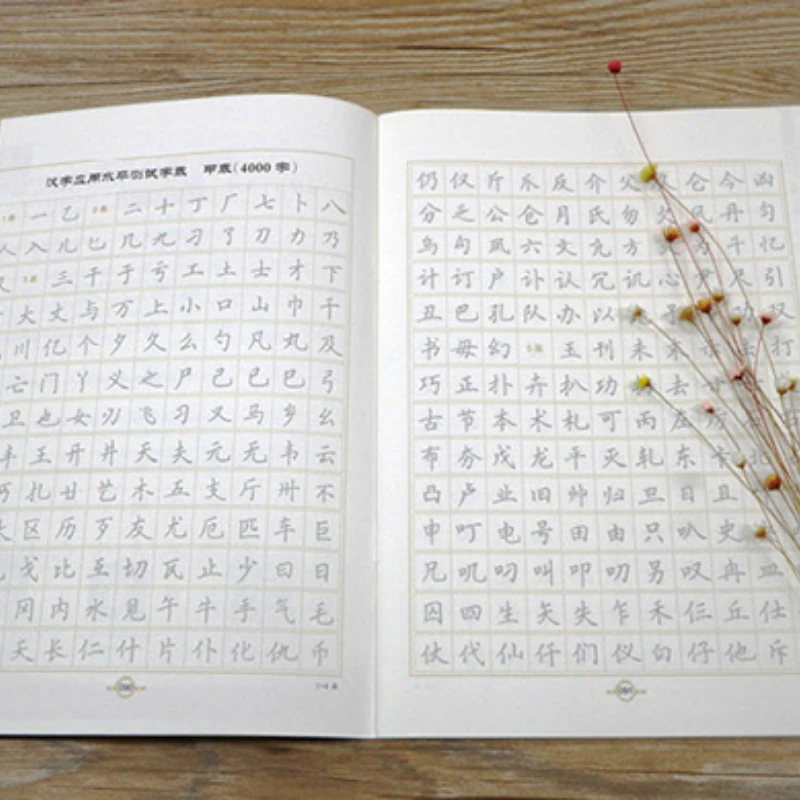 汉字应用水平测试字表 甲表(4000字)
一乙 二十丁厂七卜八
人入儿匕几九刁了刀力乃
又 三干于亏工土士才下
大丈与万上小口山巾千
川亿个夕久么勺凡丸及
亡门丫义之尸己已巳弓
卫也女刃飞习叉马乡幺
丰王开井天夫元无韦云
扎廿艺木五支厅卅不
犬区历歹友尤厄匹车巨
戈比互切瓦止少曰日
冈内水见午牛手气毛
夭长仁什片仆化仇币
仍仅斤爪反介父 仑今凶
分乏公仓月氏勿欠风丹匀
乌勾凤六文亢方火为斗忆
计订户讣认冗讥心尹尺引
丑巴孔队办以 双
书毋幻 玉刊未末 打
巧正扑卉扒功 去甘
古节本术札可丙左厉
布夯戊龙平灭轧东卡北
凸卢业旧帅归旦目且
申叮电号田由只叭史
兄叽叼叫叩叨另叹冉皿
囚四生矢失乍禾仨丘仕
仗代仙仟们仪白仔他斥